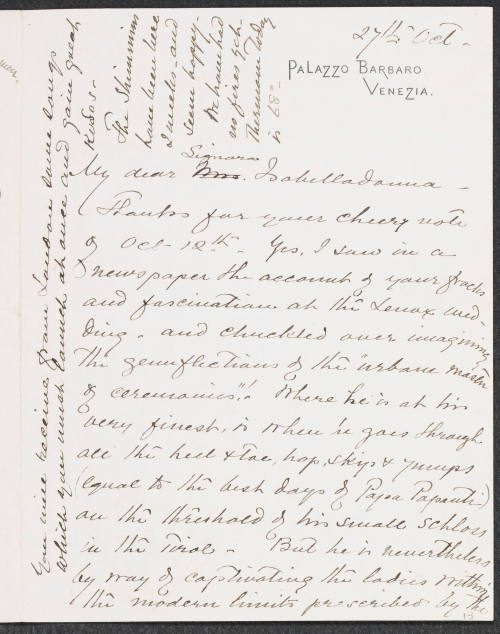 27th Oct.
PALAZZO BARBARO
VENEZIA.
My dear Mrs. Signora Isabelladonna -
Thanks for your cheery note
of Oct 12th. Yes, I saw in a
newspaper the account of your frocks
and fascination at the Lenox wed-
ding - and chuckled over imagining
the genuflections of the "urbane master
of ceremonies"! Where he is at his
very finest, is when he goes through
all the heel & toe, hop, skip & jumps
(equal to the best days of Papa Papanti)
on the threshold of his small schloss
in the Tirol - But he is nevertheless
by way of captivating the ladies within
the modern limits prescribed by the
The
have been here
2 weeks - and
seem happy.
We have had
no fires yet -
Thermom. today
is 68°-
You will receive from London some songs
which you must launch at once and gain great
Kudos -